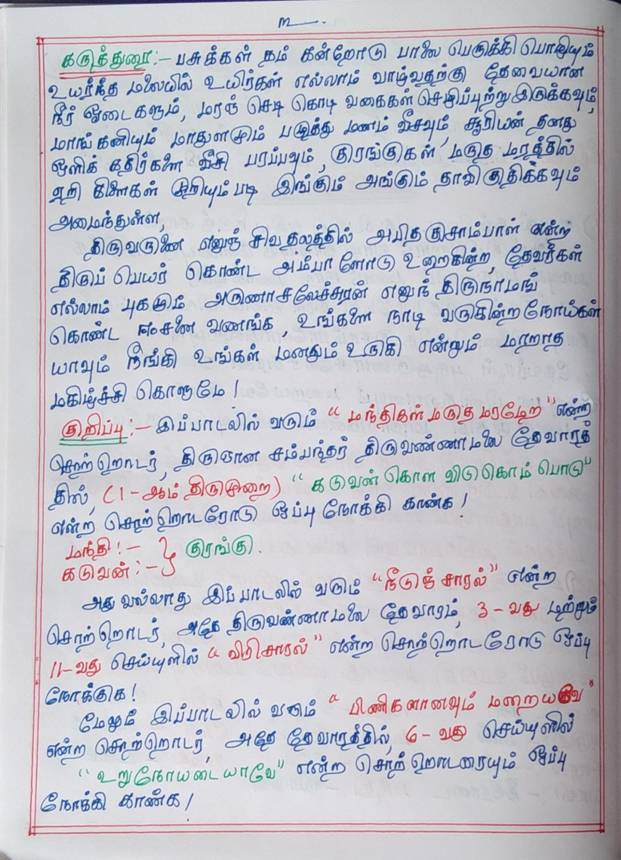 கருத்துரை:- பசுக்கள் தம் கன்றோடு பாலை பெருக்கி பொழியும்
உயர்ந்த மலையில் உயிர்கள் எல்லாம் வாழ்வதற்கு தேவையான
நீர் ஓடைகளும், மரஞ் செடி கொடி வகைகள் செழிப்புற்று இருக்கவும்,
மாங்கனியும் மாதுளமும் பழுத்து மணம் வீசவும், சூரியன் தனது
ஒளிக் கதிர்களை வீசி பரப்பவும், குரங்குகள் மருத மரத்தில்
ஏறி கிளைகள் முறியும்படி இங்கும் அங்கும் தாவி குதிக்கவும்
அமைந்துள்ள,
திருவருணை எனுஞ் சிவதலத்தில் அபிதகுசாம்பாள் என்ற
திருப் பெயர் கொண்ட அம்பாளோடு உறைகின்ற, தேவர்கள்
எல்லாம் புகழும் அருணாசலேச்சுரன் எனுந் திருநாமங்
கொண்ட ஈசனை வணங்க, உங்களை நாடி வருகின்ற நோய்கள்
யாவும் நீங்கி உங்கள் மனதும் உருகி என்றும் மாறாத
மகிழ்ச்சி கொளுமே!
குறிப்பு:- இப்பாடலில் வரும் "மந்திகள் மருத மரமேற" என்ற
சொற்றொடர், திருஞான சம்பந்தர் திருவண்ணாமலை தேவாரத்
தில், (1-ஆம் திருமுறை) "கடுவன் கொள விடுகொம் பொடு"
என்ற சொற்றொடரோடு ஒப்பு நோக்கி காண்க!
மந்தி:- } குரங்கு.
கடுவன்:-
அது வல்லாது இப்பாடலில் வரும் "நீடுஞ் சாரல்" என்ற
சொற்றொடர், அதே திருவண்ணாமலை தேவாரம், 3-வது மற்றும்
11-வது செய்யுளில் "விரிசாரல்" என்ற சொற்றொடரோடு ஒப்பு
நோக்குக!
மேலும் இப்பாடலில் வரும் "பிணிகளானவும் மறையவே"
என்ற சொற்றொடர், அதே தேவாரத்தில், 6-வது செய்யுளில்
"உறுநோயடையாவே" என்ற சொற்றொடரையும் ஒப்பு
நோக்கி காண்க!